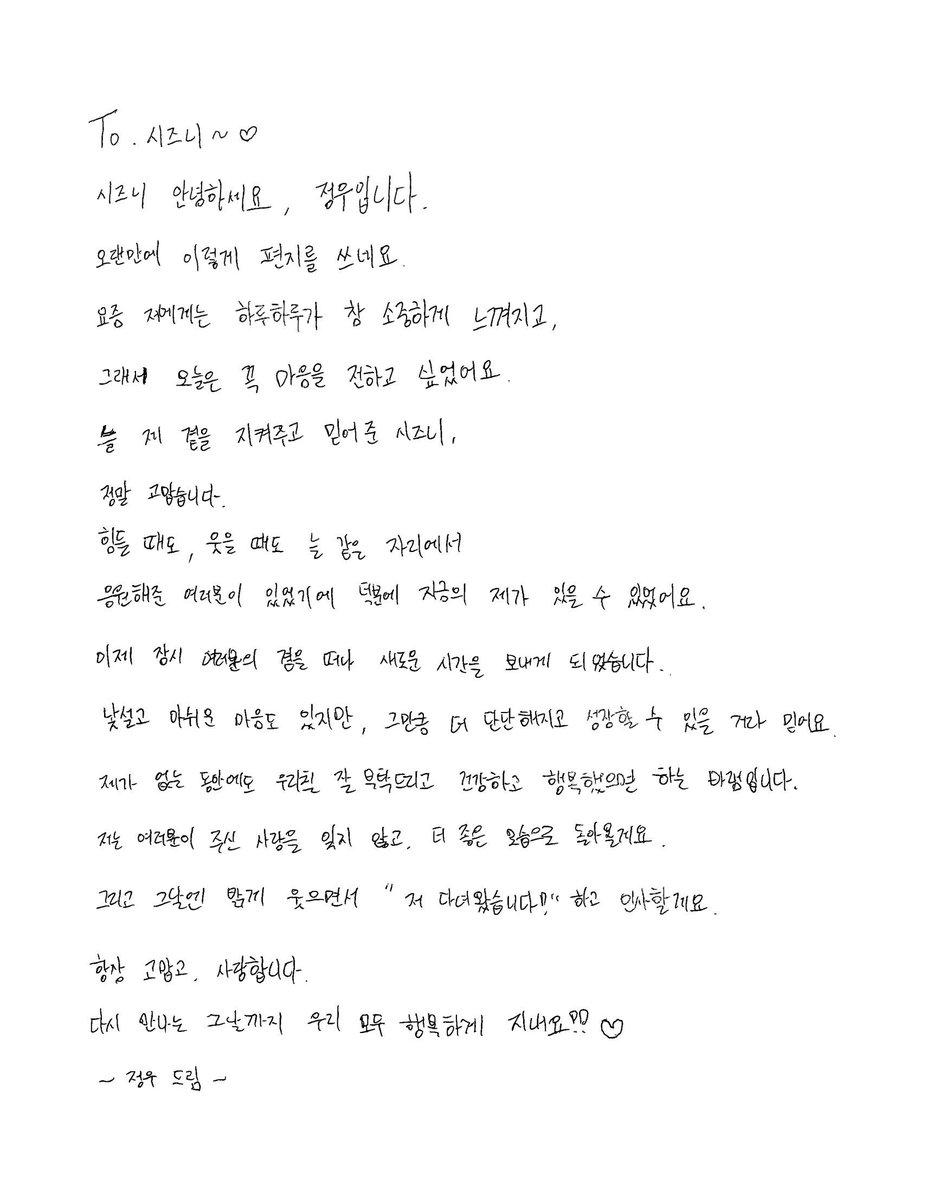 To. 시즈니~♡
시즈니 안녕하세요, 정우입니다.
오랜만에 이렇게 편지를 쓰네요.
요즘 저에게는 하루하루가 참 소중하게 느껴지고,
그래서 오늘은 꼭 마음을 전하고 싶었어요.
늘 제 곁을 지켜주고 믿어준 시즈니,
정말 고맙습니다.
힘들 때도, 웃을 때도 늘 같은 자리에서
응원해준 여러분이 있었기에 덕분에 지금의 제가 있을 수 있었어요.
이제 잠시 여러분의 곁을 떠나 새로운 시간을 보내게 되었습니다.
낯설고 아쉬운 마음도 있지만, 그만큼 더 단단해지고 성장할 수 있을 거라 믿어요.
제가 없는 동안에도 우리칠 잘 부탁드리고 건강하고 행복했으면 하는 바램입니다.
저는 여러분이 주신 사랑을 잊지 않고, 더 좋은 모습으로 돌아올게요.
그리고 그날엔 밝게 웃으면서 "저 다녀왔습니다!" 하고 인사할게요.
항상 고맙고, 사랑합니다.
다시 만나는 그날까지 우리 모두 행복하게 지내요!! ♡
~ 정우 드림 ~